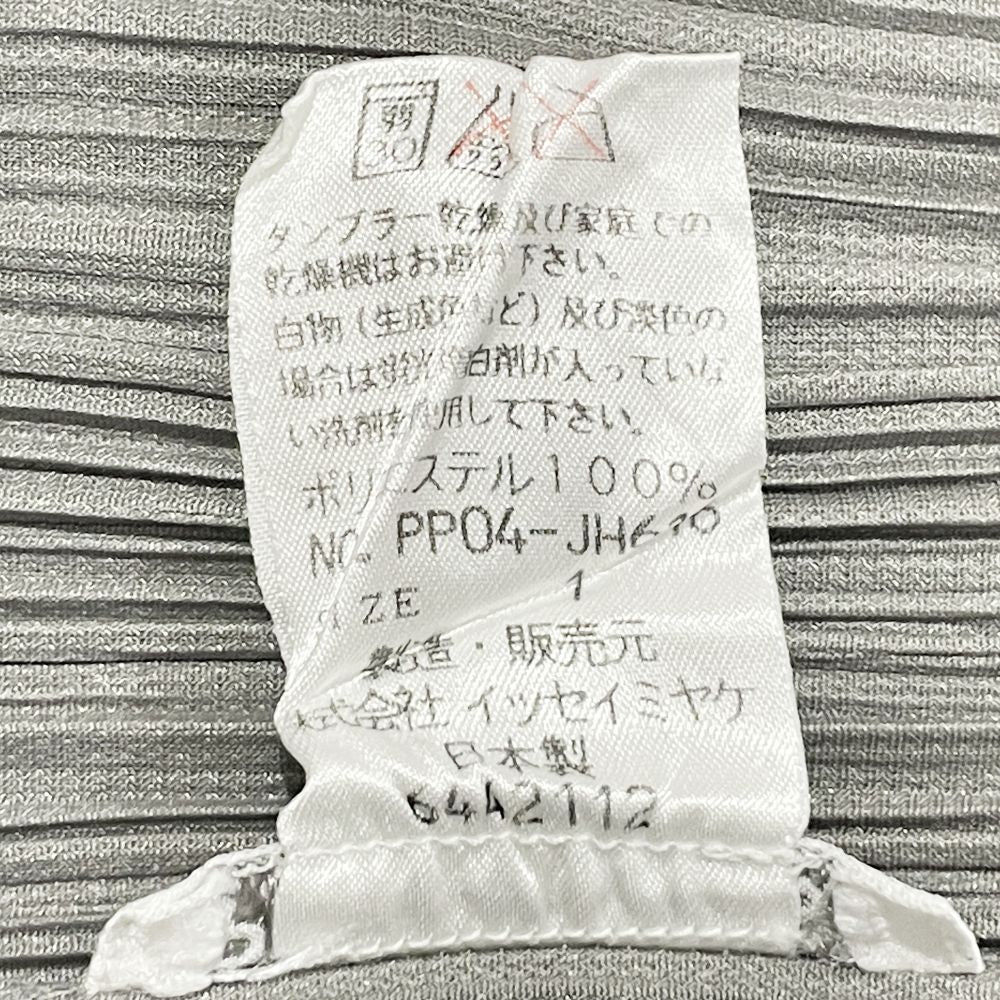 弱
30
タンブラー乾燥及び家庭での
乾燥機はお避け下さい。
白物（生成色など）及び淡色の
場合は蛍光増白剤が入っていな
い洗剤を使用して下さい。
ポリエステル100%
NO. PP04-JH
SIZE 1
製造・販売元
株式会社イッセイミヤケ
日本製
6442112